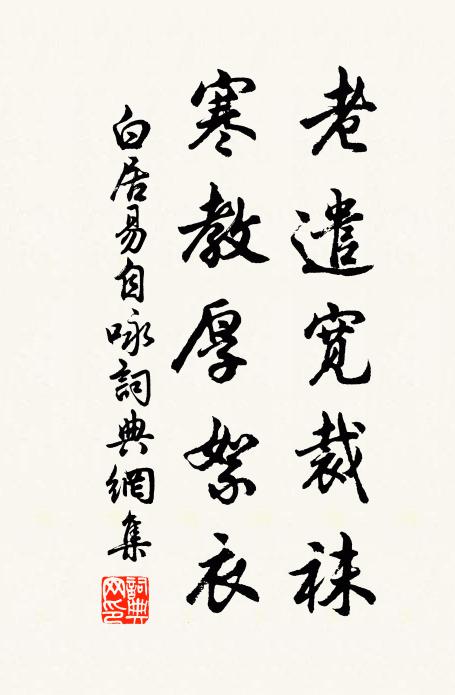 老遣寬裁袜
寒教厚絮衣
白居易自咏詞典網集
詞典
网印